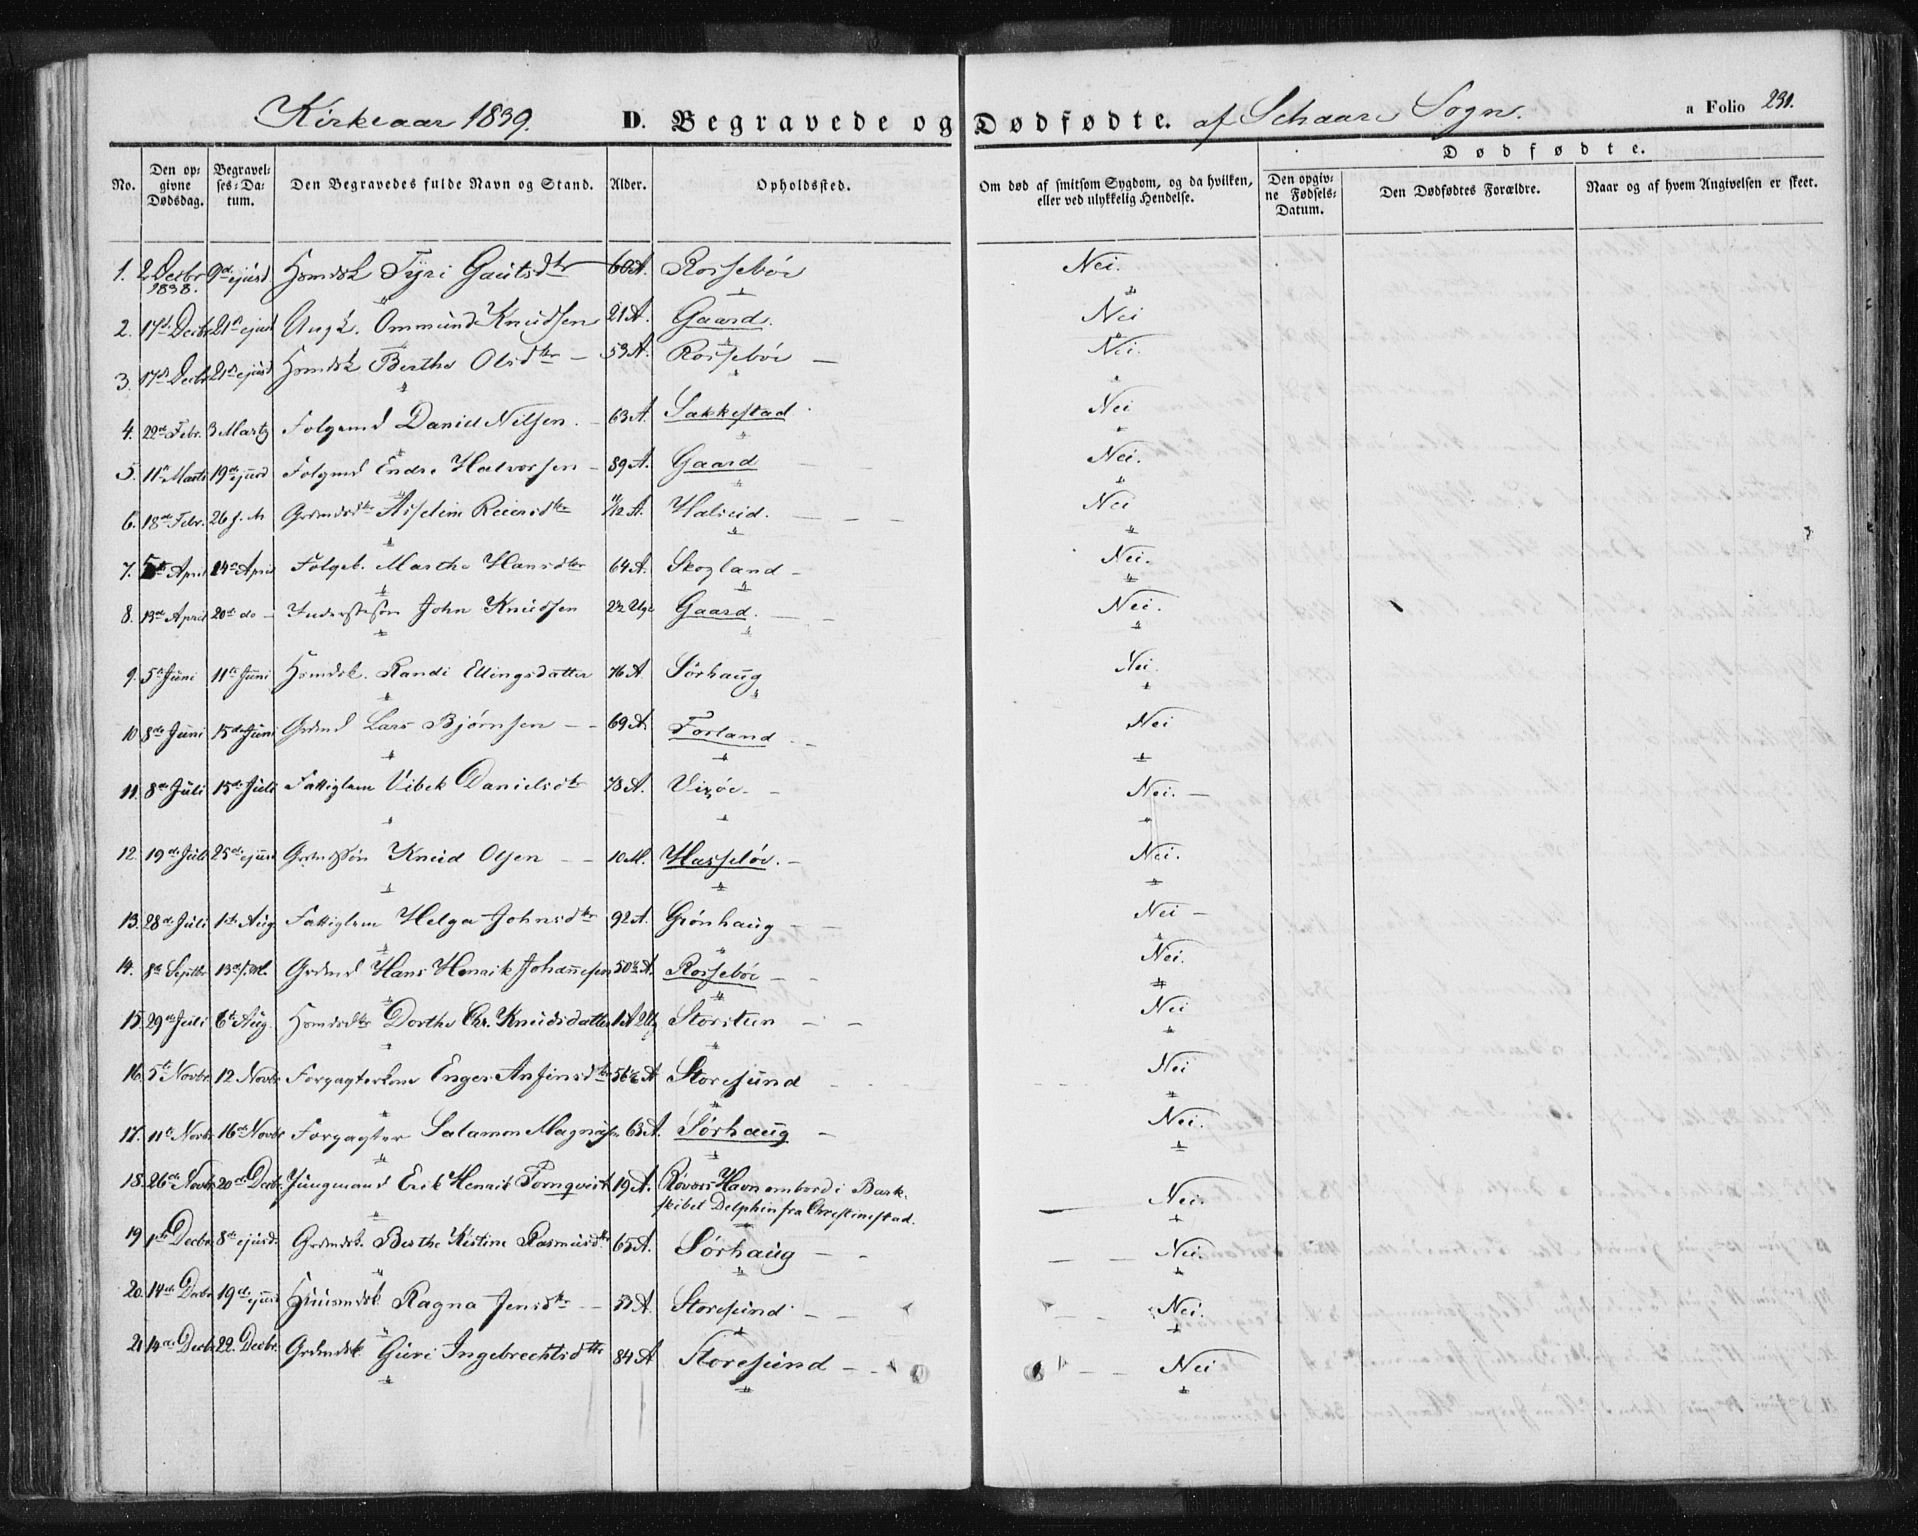 Kirkeaar 1839. D. Begravede og Dødfødte. af Schaare Sogn. a Folio 231.
Dødfødte.
No. Den opgivne Dødsdag. Begravelses-Datum. Den Begravedes fulde Navn og Stand. Alder. Opholdssted. Om død af smitsom Sygdom, og da hvilken, eller ved ulykkelig Hendelse. Den opgivne Fødsels-Datum. Den Dødfødtes Forældre. Naar og af hvem Angivelsen er skeet.
1. 2 Decbr 1838. 9de ejusd Hsmdsk Tyri Gautsdtr 60 A. Rossebøe Nei.
2. 17de Decbr 21de ejusd Ungk. Ommund Knudsen 21 A. Gaard. Nei
3. 17de Decbr 21de ejusd Hsmdsk Berthe Olsdtr – 53 A. Rossebøe – Nei.
4. 22de Febr. 3 Marts Folgemd Daniel Nilsen. – 63 A. Sakkestad Nei
5. 11te Marts 19de ejusd Folgmd Endre Halvorsen – 89 A. Gaard – Nei.
6. 18de Febr. 26 f. M Grdmdsdtr Asseline Reiersdtr 11/12 A. Halseid. – – – Nei
7. 5te April 14de April Folgek. Marthe Hansdtr 64 A. Skogland – Nei.
8. 13de April 20de do – Inderstesøn John Knudsen 2½ Uge Gaard. – – Nei.
9. 5te Juni 11te Juni Hsmdsk. Randi Ellingsdatter 76 A. Sørhaug Nei.
10 8de Juni 15de Juni Grdmd Lars Bjørnsen – – 69 A. Førland – – Nei
11. 8de Juli 15de Juli Fattiglem Vibek Danielsdtr 78 A. Vixøe. – Nei. –
12. 19de Juli 25de ejusd Grdmdssøn Knud Olsen – – 10 M. Hasseløe. – Nei.
13. 28de Juli 1ste Aug Fattiglem Helga Johnsdtr 92 A. Grønhaug – – Nei –
14. 8de Septbr 13de f. M. Grdmd Hans Henrik Johannesen 50½ A. Rossebøe – – Nei.
15. 29de Juli 6te Aug. Hsmdsdtr Dorthe Chr. Knudsdatter 1 A 2 Ug Storsteen – – Nei
16. 5te Novbr. 12 Novbr. Forpagterkone Enger Anfinsdtr 56½ A Storesund Nei
17. 11te Novbr 16de Novbr Forpagter Salamon Magnusen 63 A. Sørhaug – Nei.
18. 26de Novbr 20de Decbr. Jungmand Erik Henrik Tornqvist 19 A. Røvers Havn ombord i Bark-
skibet Delphin fra Christinestad. Nei.
19 1ste Decbr. 8de ejusd. Grdmdsk. Berthe Kistine Rasmusdtr 65 A. Sørhaug – – Nei.
20. 14de Decbr 19de ejusd Huusmdsk. Ragna Jensdtr – – 57 A. Storesund – – Nei.
21 14de Decbr 22. Decbr. Grdmdsk Guri Ingebrechtsdtr 84 A Storesund – – Nei